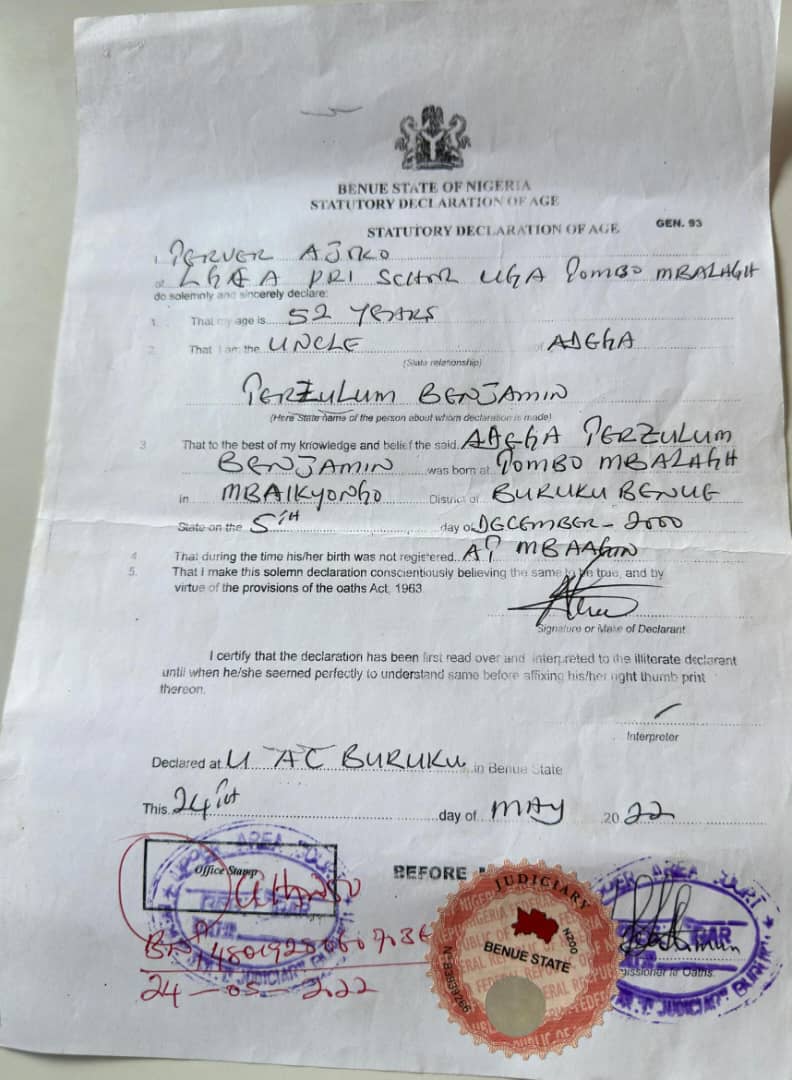 BENUE STATE OF NIGERIA
STATUTORY DECLARATION OF AGE
STATUTORY DECLARATION OF AGE GEN. 93
I TERVER
of LGEA PRI SCHOL UGA TOMBO MBALAGH
do solemnly and sincerely declare:
1. That my age is 52 YEARS
2. That I am the UNCLE of ADEGA
(State relationship)
TERZULUM BENJAMIN
(Here State name of the person about whom declaration is made)
3 That to the best of my knowledge and belief the said. ADEGA TERZULUM
BENJAMIN was born at TOMBO MBALAGH
in MBAIKYONGO District of BURUKU BENUE
State on the 5TH day of DECEMBER - 2000
4 That during the time his/her birth was not registered. AT
5. That I make this solemn declaration conscientiously believing the same to be true, and by
virtue of the provisions of the oaths Act, 1963.
Signature or Make of Declarant
I certify that the declaration has been first read over and interpreted to the illiterate declarant
until when he/she seemed perfectly to understand same before affixing his/her right thumb print
thereon.
Interpreter
Declared at U AC BURUKU in Benue State
This 24 day of MAY 2022
Office Stamp
BEFORE
UPPER AREA COURT
JUDICIARY
N200
BENUE STATE
UPPER AREA COURT
JUDICIARY BURUKU
missioner for Oaths
24-05-2022